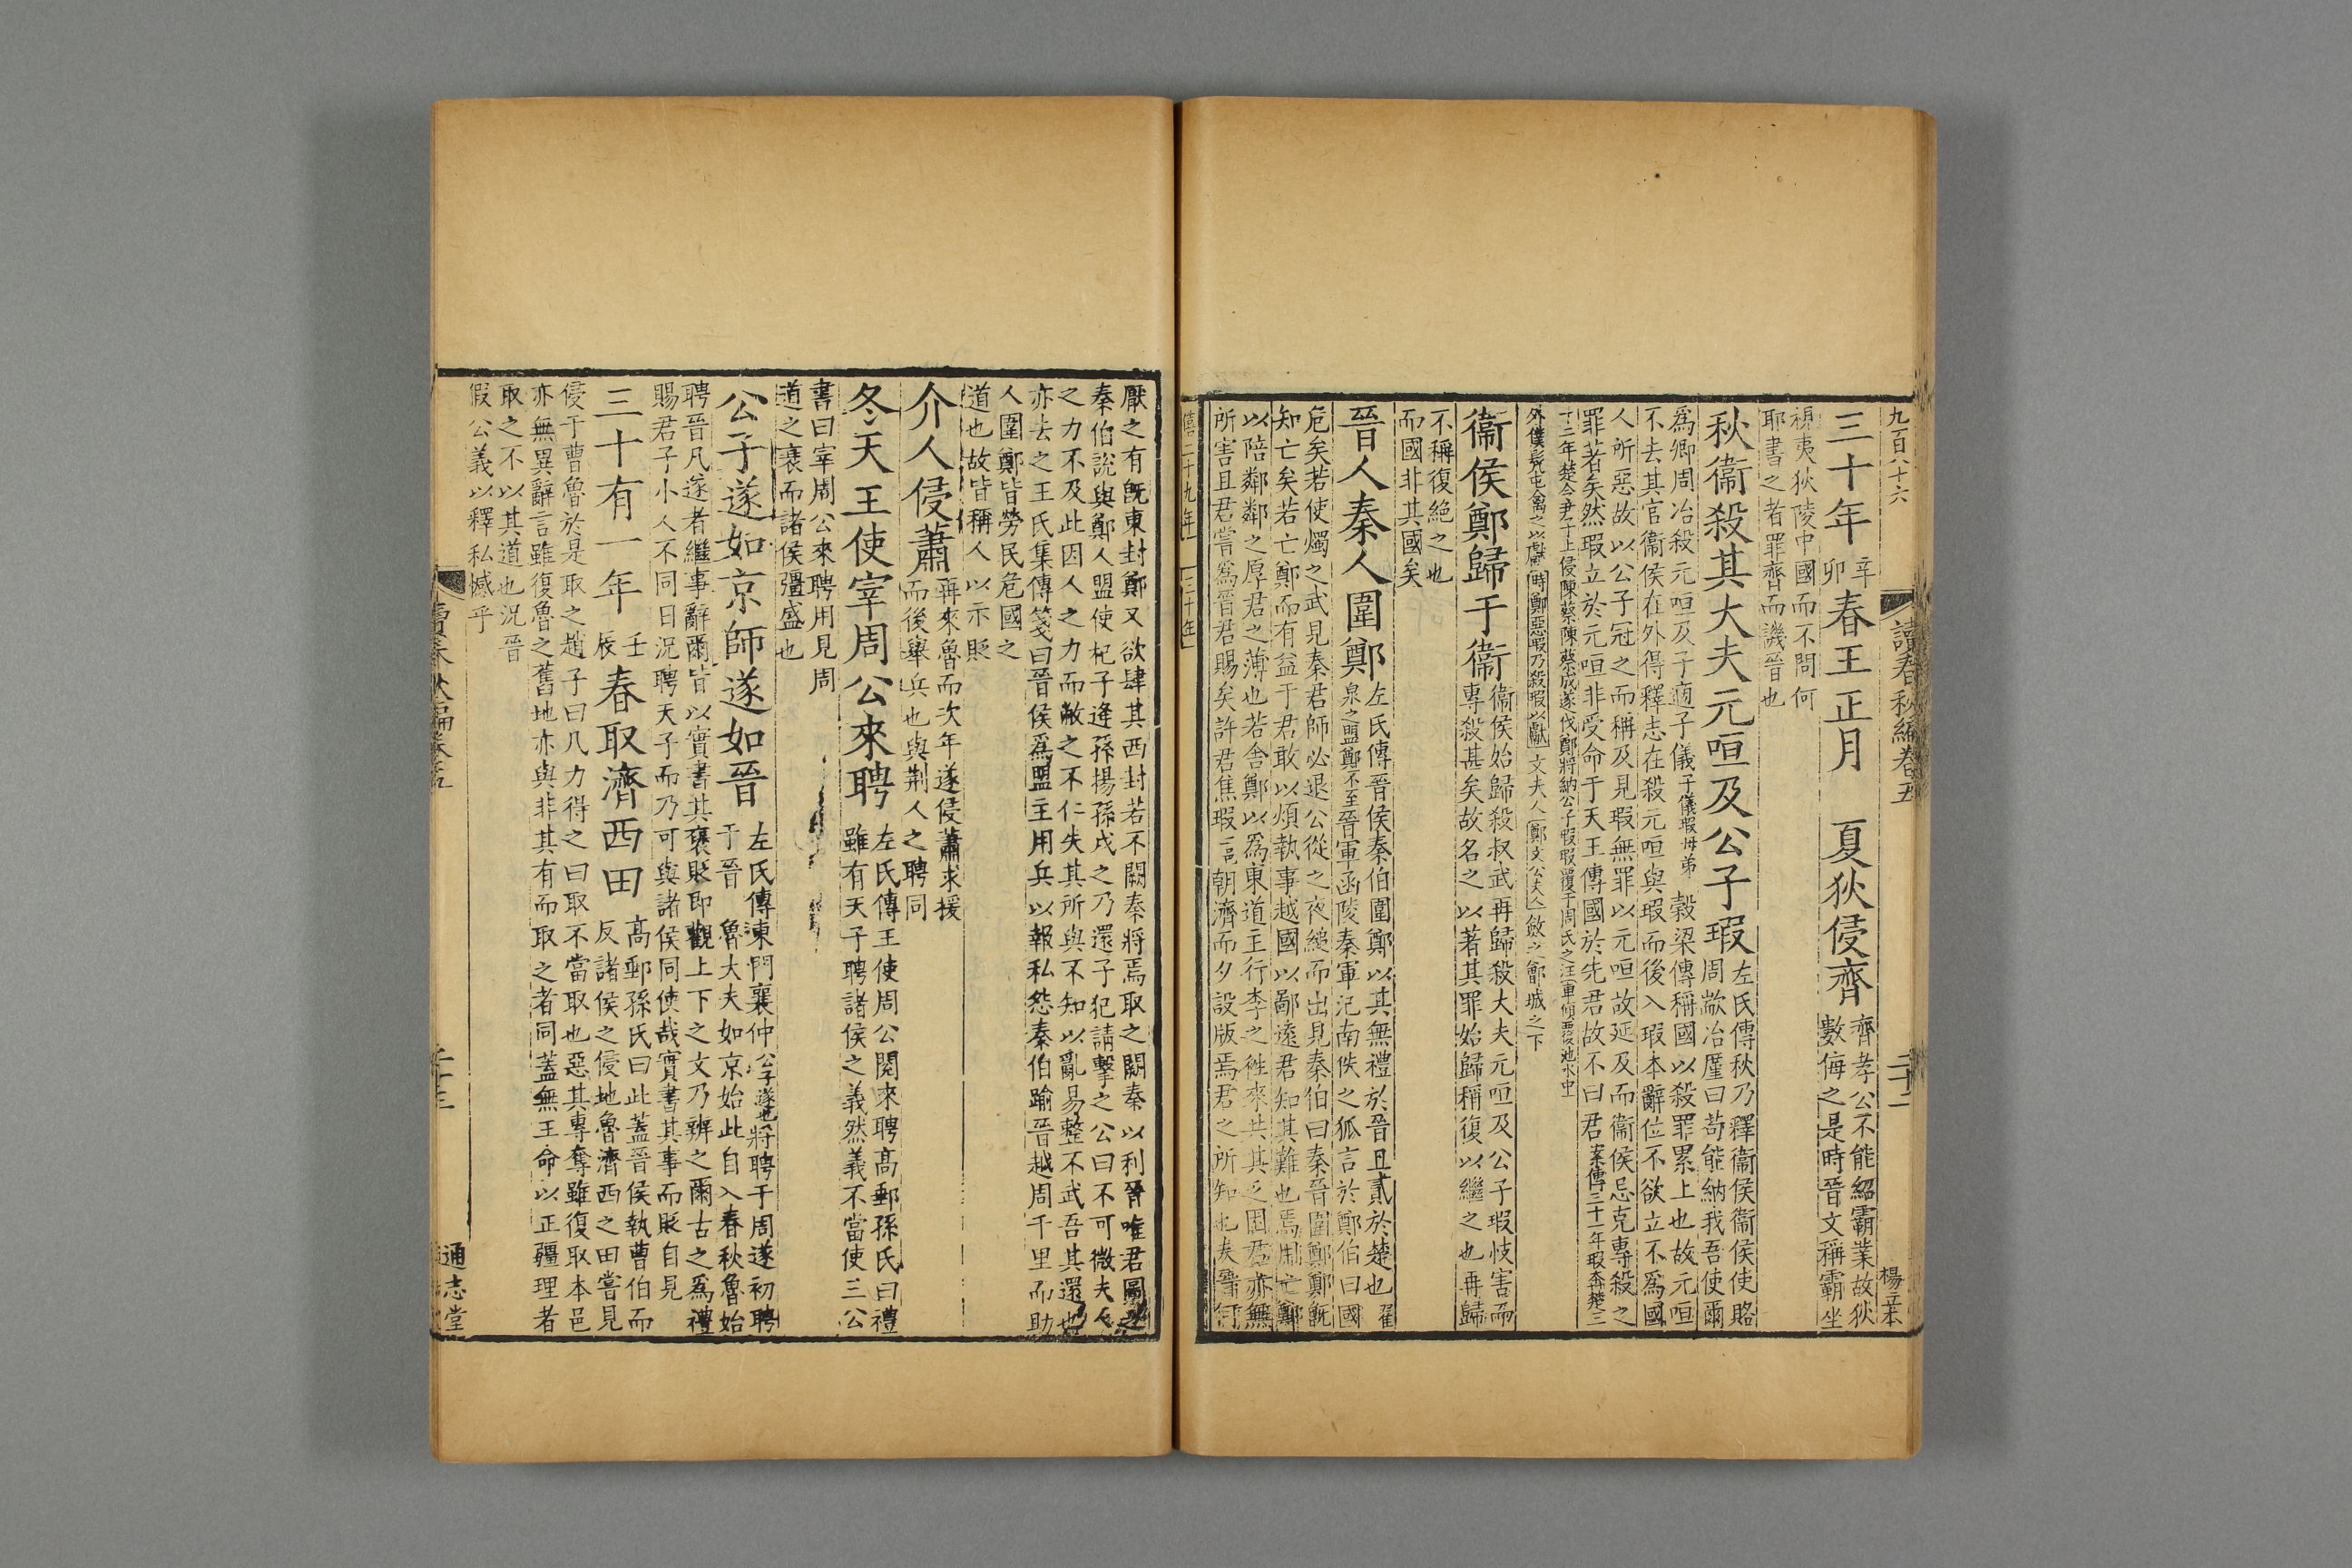 九百八十六
讀春秋編卷五
二十二
楊立本
三十年辛卯春王正月　夏狄侵齊齊孝公不能紹霸業故狄
數侮之是時晉文稱霸坐
視夷狄陵中國而不問何
耶書之者罪齊而譏晉也
秋衞殺其大夫元咺及公子瑕左氏傳秋乃釋衞侯衞侯使賂
周歂冶廑曰苟能納我吾使爾
爲卿周冶殺元咺及子適子儀子儀瑕母弟　穀梁傳稱國以殺罪累上也故元咺
不去其官衞侯在外得釋志在殺元咺與瑕而後入瑕本辭位不欲立不爲國
人所惡故以公子冠之而稱及見瑕無罪以元咺故延及而衞侯忌克專殺之
罪著矣然瑕立於元咺非受命于天王傳國於先君故不曰君案傳三十一年瑕奔楚三
十三年楚令尹子上侵陳蔡陳蔡成遂伐鄭將納公子瑕瑕覆于周氏之汪車傾覆池水中
外僕髡屯禽之以獻時鄭惡瑕乃殺瑕以獻文夫人鄭文公夫人斂之鄶城之下
衞侯鄭歸于衞衞侯始歸殺叔武再歸殺大夫元咺及公子瑕忮害而
專殺甚矣故名之以著其罪始歸稱復以繼之也再歸
不稱復絶之也
而國非其國矣
晉人秦人圍鄭左氏傳晉侯秦伯圍鄭以其無禮於晉且貳於楚也翟
泉之盟鄭不至晉軍函陵秦軍氾南佚之狐言於鄭伯曰國
危矣若使燭之武見秦君師必退公從之夜縋而出見秦伯曰秦晉圍鄭鄭旣
知亡矣若亡鄭而有益于君敢以煩執事越國以鄙遠君知其難也焉用亡鄭
以陪鄰鄰之厚君之薄也若舍鄭以爲東道主行李之徃來共其乏困君亦無
所害且君嘗爲晉君賜矣許君焦瑕朝濟而夕設版焉君之所知也夫晉何
僖二十九年
三十年
厭之有旣東封鄭又欲肆其西封若不闕秦將焉取之闕秦以利晉唯君圖之
秦伯說與鄭人盟使杞子逄孫揚孫戍之乃還子犯請擊之公曰不可微夫人
之力不及此因人之力而敝之不仁失其所與不知以亂易整不武吾其還也
亦去之王氏集傳箋曰晉侯爲盟主用兵以報私怨秦伯踰晉越周千里而助
人圍鄭皆勞民危國之
道也故皆稱人以示貶
介人侵蕭再來魯而次年遂侵蕭求援
而後舉兵也與荆人之聘同
冬天王使宰周公來聘左氏傳王使周公閱來聘高郵孫氏曰禮
雖有天子聘諸侯之義然義不當使三公
書曰宰周公來聘用見周
道之衰而諸侯彊盛也
公子遂如京師遂如晉左氏傳東門襄仲公子遂也將聘于周遂初聘
于晉　魯大夫如京始此自入春秋魯始
聘晉凡遂者繼事辭爾皆以實書其褒貶即觀上下之文乃辨之爾古之爲禮
賜君子小人不同日況聘天子而乃可與諸侯同使哉實書其事而貶自見
三十有一年壬辰春取濟西田高郵孫氏曰此蓋晉侯執曹伯而
反諸侯之侵地魯濟西之田嘗見
侵于曹魯於是取之趙子曰凡力得之曰取不當取也惡其專奪雖復取本邑
亦無異辭言雖復魯之舊地亦與非其有而取之者同蓋無王命以正疆理者
取之不以其道也況晉
假公義以釋私憾乎
讀春秋編卷五
二十三
通志堂